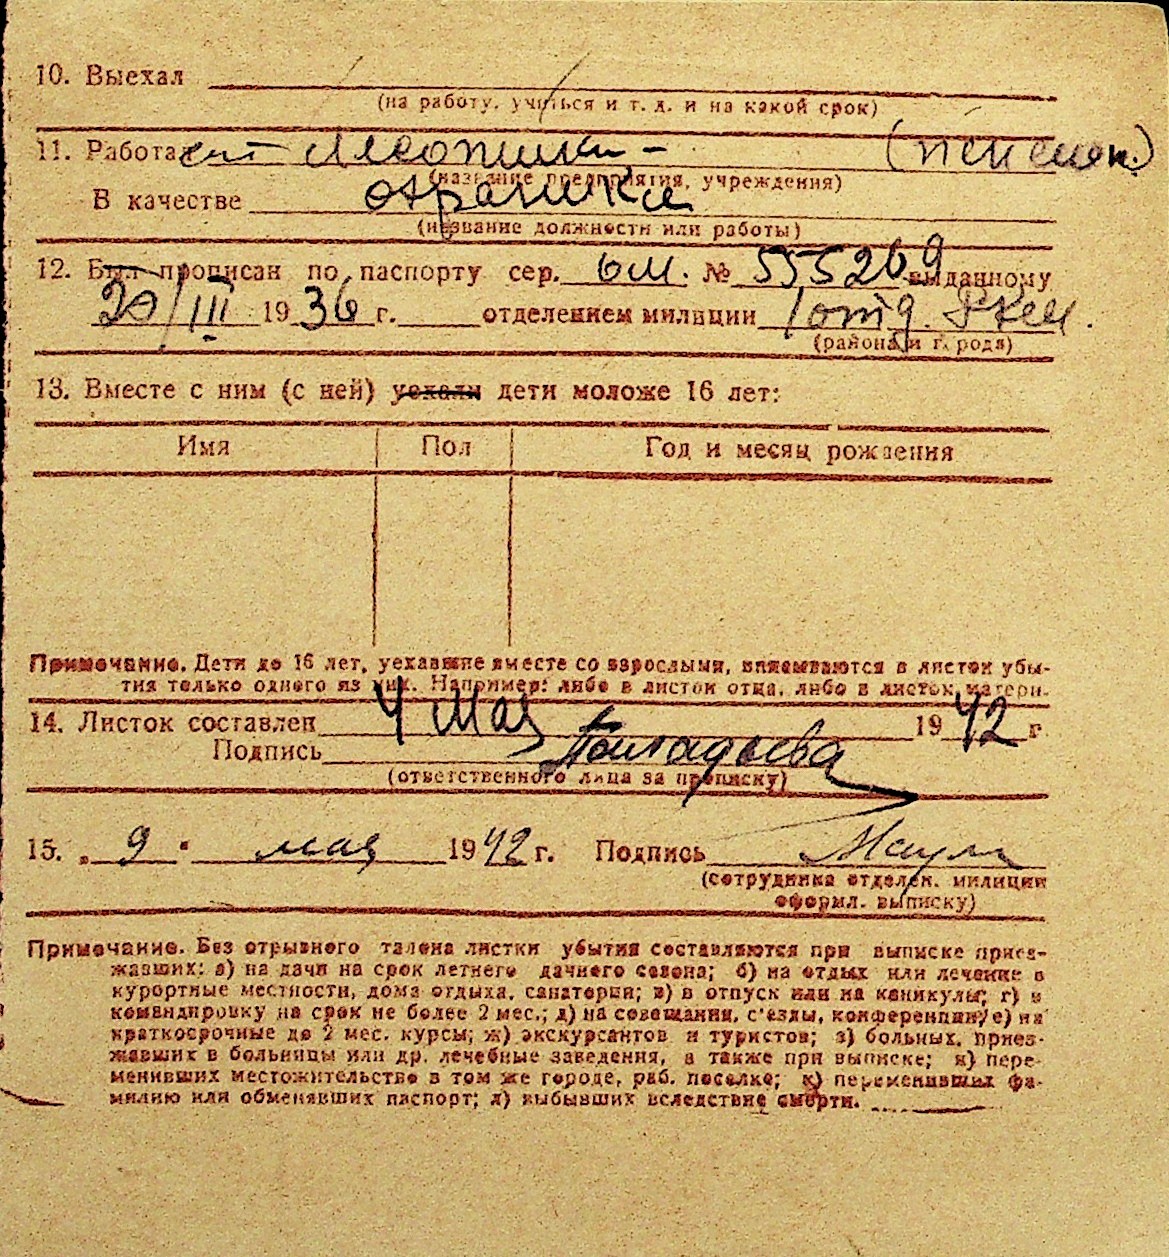 10. Выехал
(на работу, учиться и т. д. и на какой срок)
11. Работает (пенсион.)
(название предприятия, учреждения)
В качестве
(название должности или работы)
12. Был прописан по паспорту сер. № 555269 выданному
20/III 1936 г. отделением милиции 1 отд.
(района и города)
13. Вместе с ним (с ней) уехали дети моложе 16 лет:
Имя Пол Год и месяц рождения
Примечание. Дети до 16 лет, уехавшие вместе со взрослыми, вписываются в листок убы-
тия только одного из них. Например: либо в листок отца, либо в листок матери.
14. Листок составлен 4 мая 1942 г
Подпись
(ответственного лица за прописку)
15. „ 9 " мая 1942 г. Подпись
(сотрудника отделен. милиции
оформл. выписку)
Примечание. Без отрывного талона листки убытия составляются при выписке приез-
жавших: а) на дачи на срок летнего дачного сезона; б) на отдых или лечение в
курортные местности, дома отдыха, санатории; в) в отпуск или на каникулы; г) в
командировку на срок не более 2 мес.; д) на совещания, с'езды, конференции; е) на
краткосрочные до 2 мес. курсы; ж) экскурсантов и туристов; з) больных, приез-
жавших в больницы или др. лечебные заведения, а также при выписке; и) пере-
менивших местожительство в том же городе, раб. поселке; к) переменивших фа-
милию или обменявших паспорт; л) выбывших вследствие смерти.